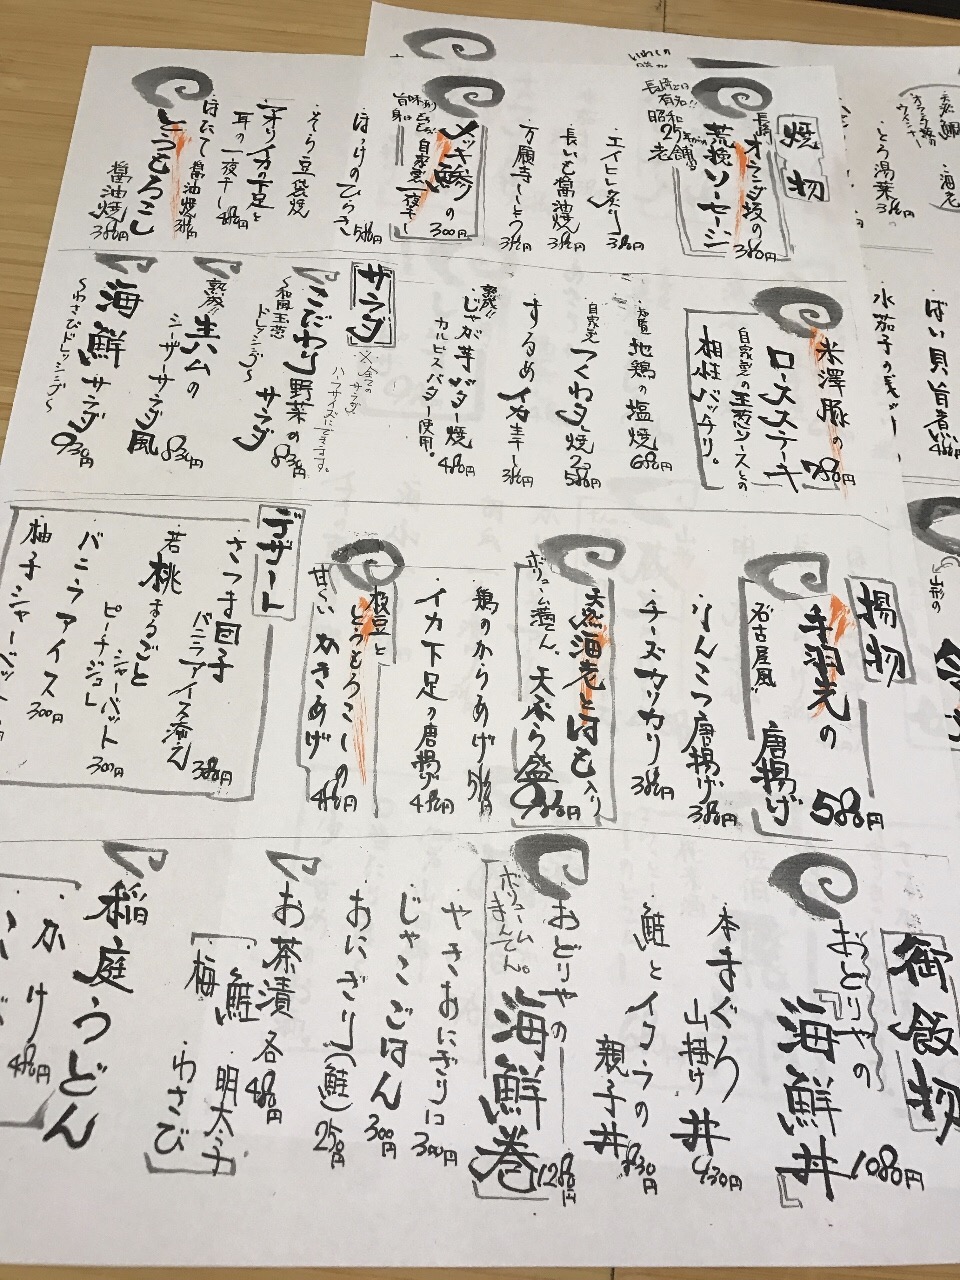 焼物
長崎オランダ坂の
荒挽ソーセージ
380円
長崎では
有名!!
エイヒレ炙り
380円
長いも醤油焼
380円
万願寺とうがらし
メッキ鯵の
自家製一夜干し
300円
ほっけのひらき
580円
そら豆袋焼
アオリイカの下足と
耳の一夜干し
480円
ほたて醤油焼
とうもろこし
醤油焼
380円
米澤豚の
ロースステーキ
780円
自家製の玉葱ソースとの
相性バッチリ。
地鶏の塩焼
680円
自家製
つくねタレ焼
2コ
580円
するめイカ丰一
380円
熟成!!
じゃが芋バター焼
カルピスバター使用。
480円
サラダ
※全ての
サラダ
ハーフサイズにできます。
こだわり野菜の
サラダ
830円
〜和風玉葱
ドレッシング〜
熟成!!
生ハムの
シーザーサラダ風
830円
海鮮サラダ
〜わさびドレッシング〜
930円
揚物
手羽先の
唐揚げ
名古屋風!!
580円
なんこつ唐揚げ
380円
チーズカリカリ
380円
天然海老とはも入り
天ぷら盛
ボリューム満てん。
980円
鶏のからあげ
580円
イカ下足の唐揚げ
480円
枝豆と
とうもろこしの
かきあげ
甘〜い
480円
デザート
さつま団子
バニラアイス添え
380円
若桃まるごと
シャーベット
ピーチジュレ
300円
バニラアイス
300円
柚子シャーベット
御飯物
おどりやの
海鮮丼
1080円
本まぐろ
山掛け丼
930円
鮭とイクラの
親子丼
830円
おどりやの
海鮮巻
ボリューム
まんてん。
1280円
やきおにぎり
300円
じゃこごはん
300円
おにぎり(鮭)
250円
お茶漬
各480円
鮭
明太子
梅
わさび
稲庭うどん
かけ
480円
とろ湯葉
380円
水茄子の浅
ばい貝旨煮
480円
山形の